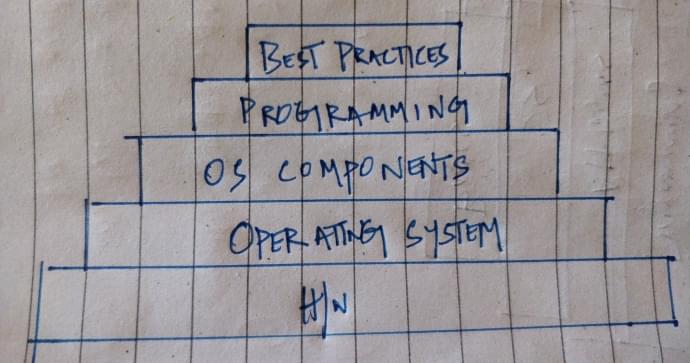 BEST PRACTICES
PROGRAMMING
OS COMPONENTS
OPERATING SYSTEM
H/W